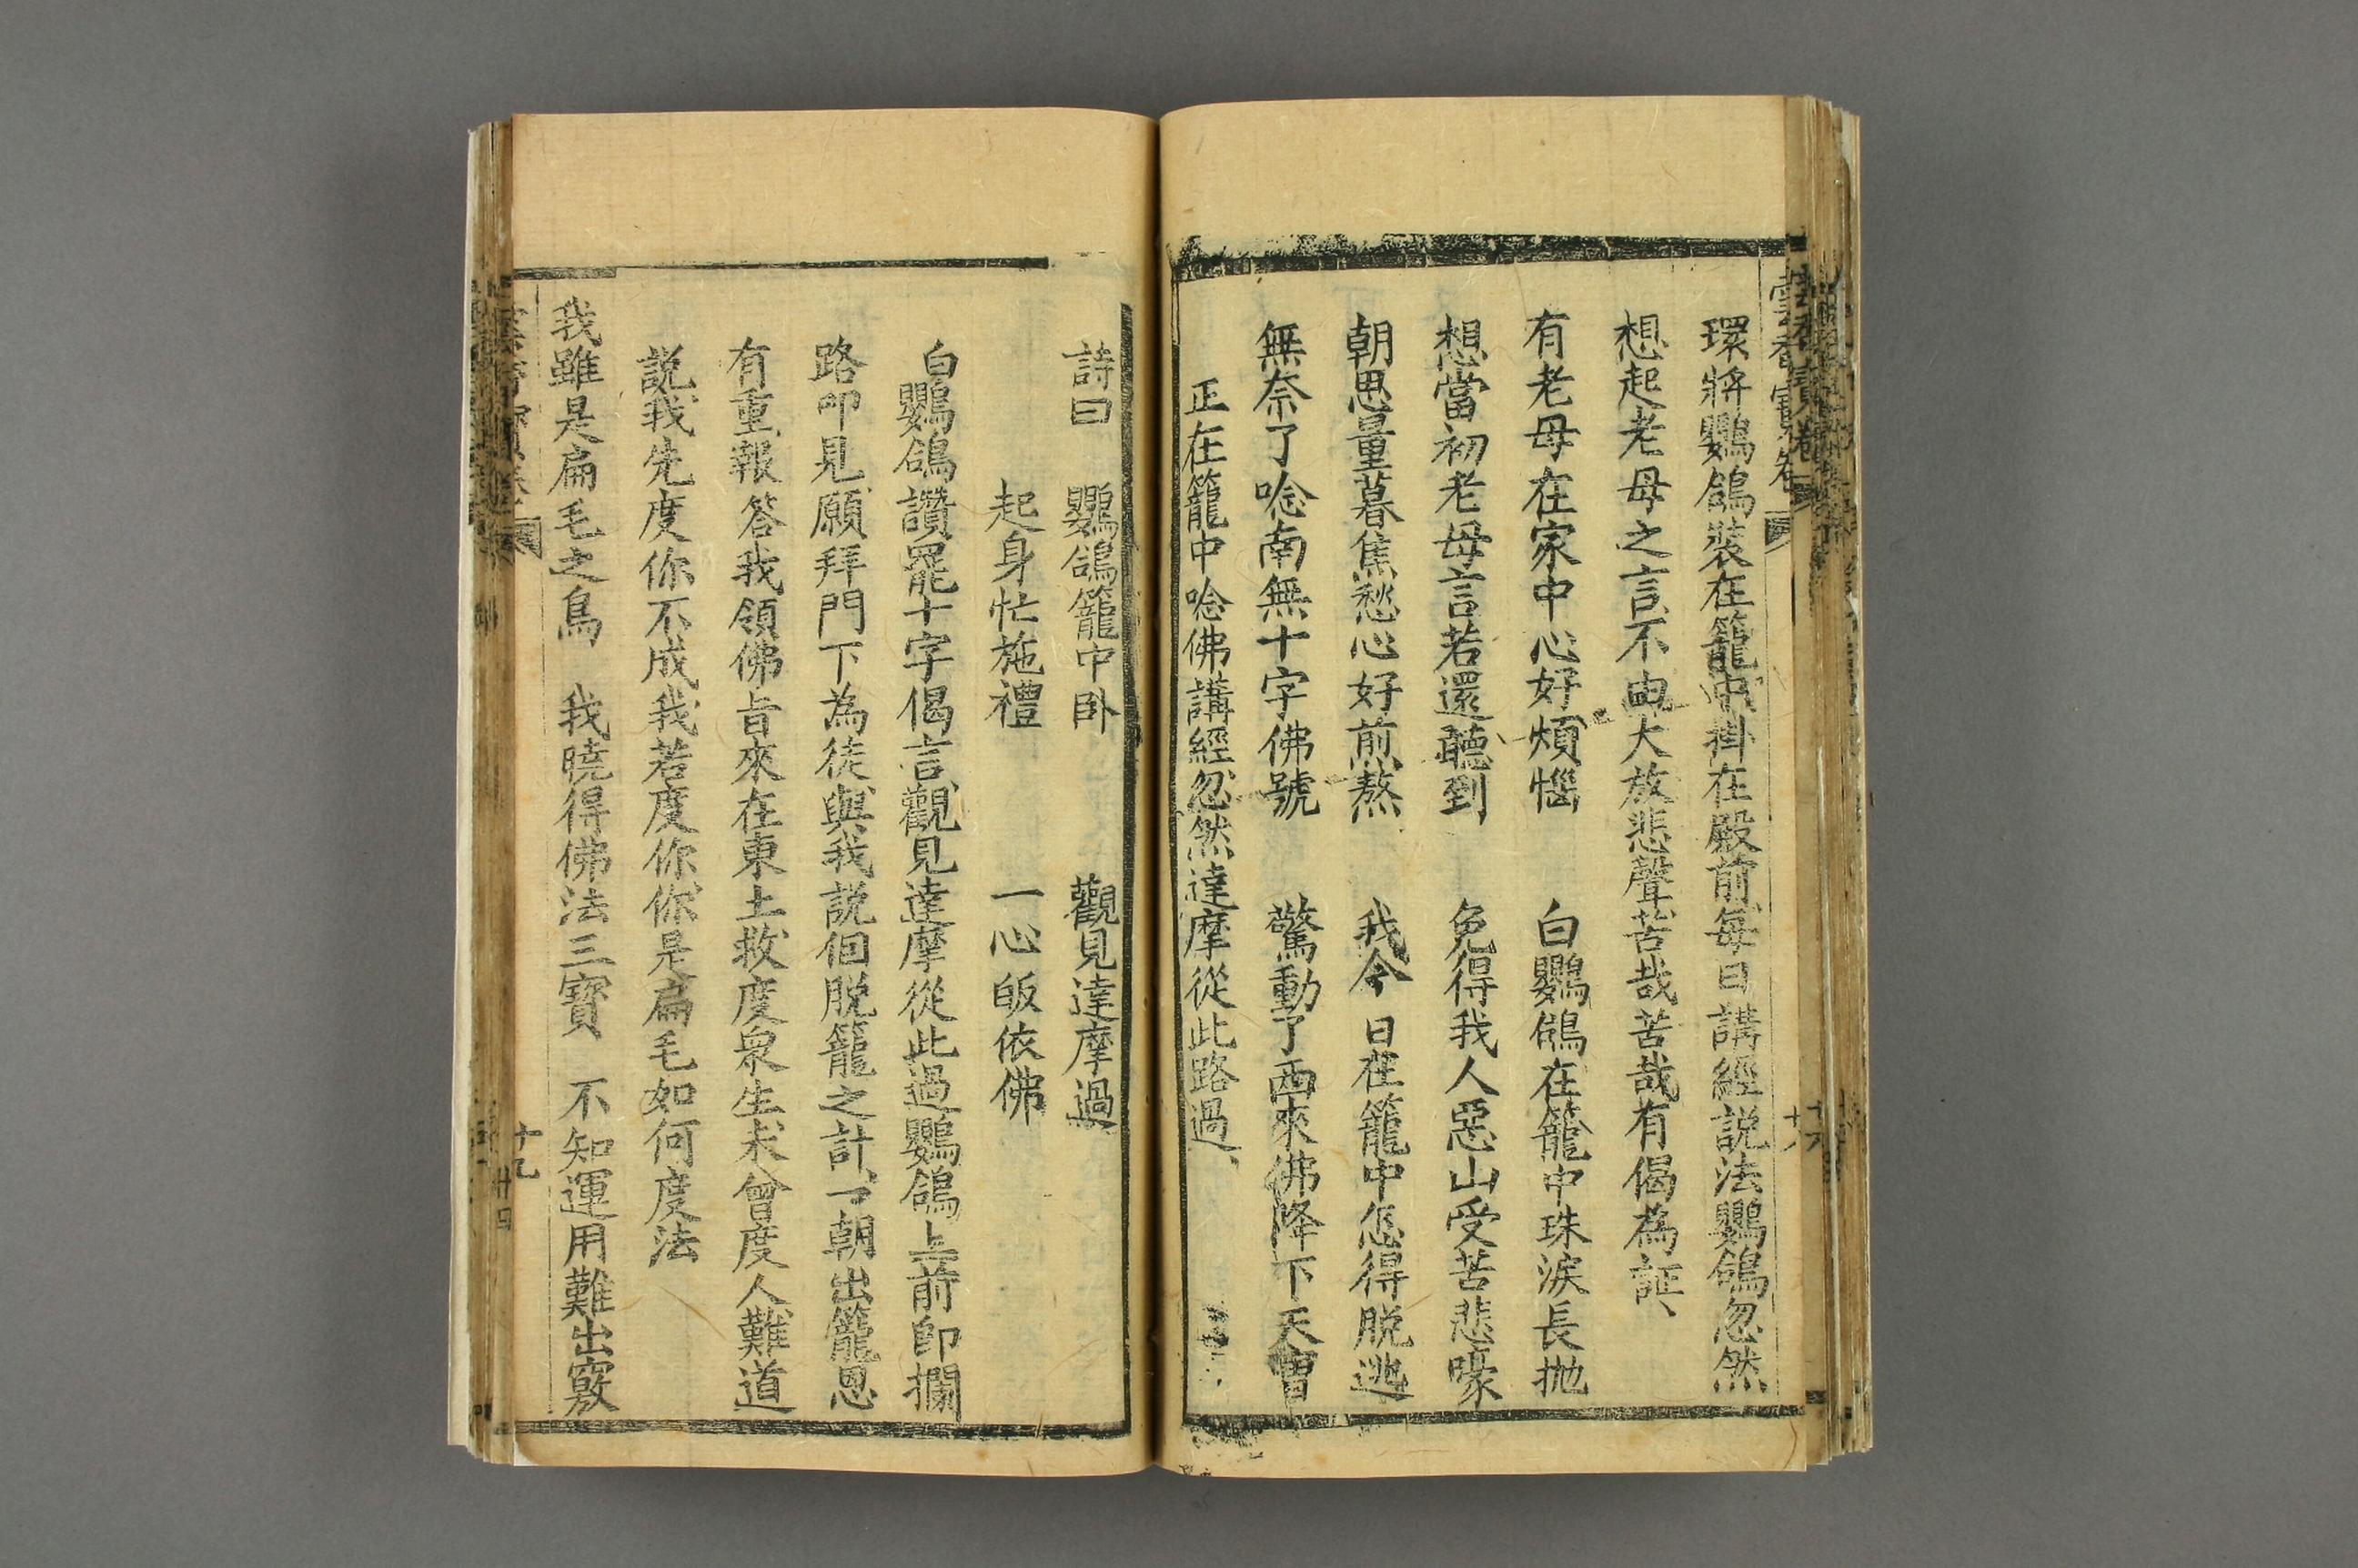 環將鸚鴿裝在籠中掛在殿前每日講經説法鸚鴿忽然
想起老母之言不由大放悲聲苦哉苦哉有偈為証、
有老母在家中心好煩惱 白鸚鴿在籠中珠淚長抛
想當初老母言若還聽到 免得我人惡山受苦悲嚎
朝思量暮焦愁心好煎熬 我今日在籠中怎得脱逃
無奈了唸南無十字佛號 驚動了西來佛降下天曹
正在籠中唸佛講經忽然達摩從此路過、
詩曰 鸚鴿籠中卧 觀見達摩過
起身忙施禮 一心皈依佛
白鸚鴿讚罷十字偈言觀見達摩從此過鸚鴿上前卽攔
路叩見願拜門下為徒與我説個脱籠之計、一朝出籠恩
有重報答我領佛旨來在東土救度衆生未曾度人難道
説我先度你不成我若度你你是扁毛如何度法
我雖是扁毛之鳥 我曉得佛法三寳 不知運用難出竅
十九